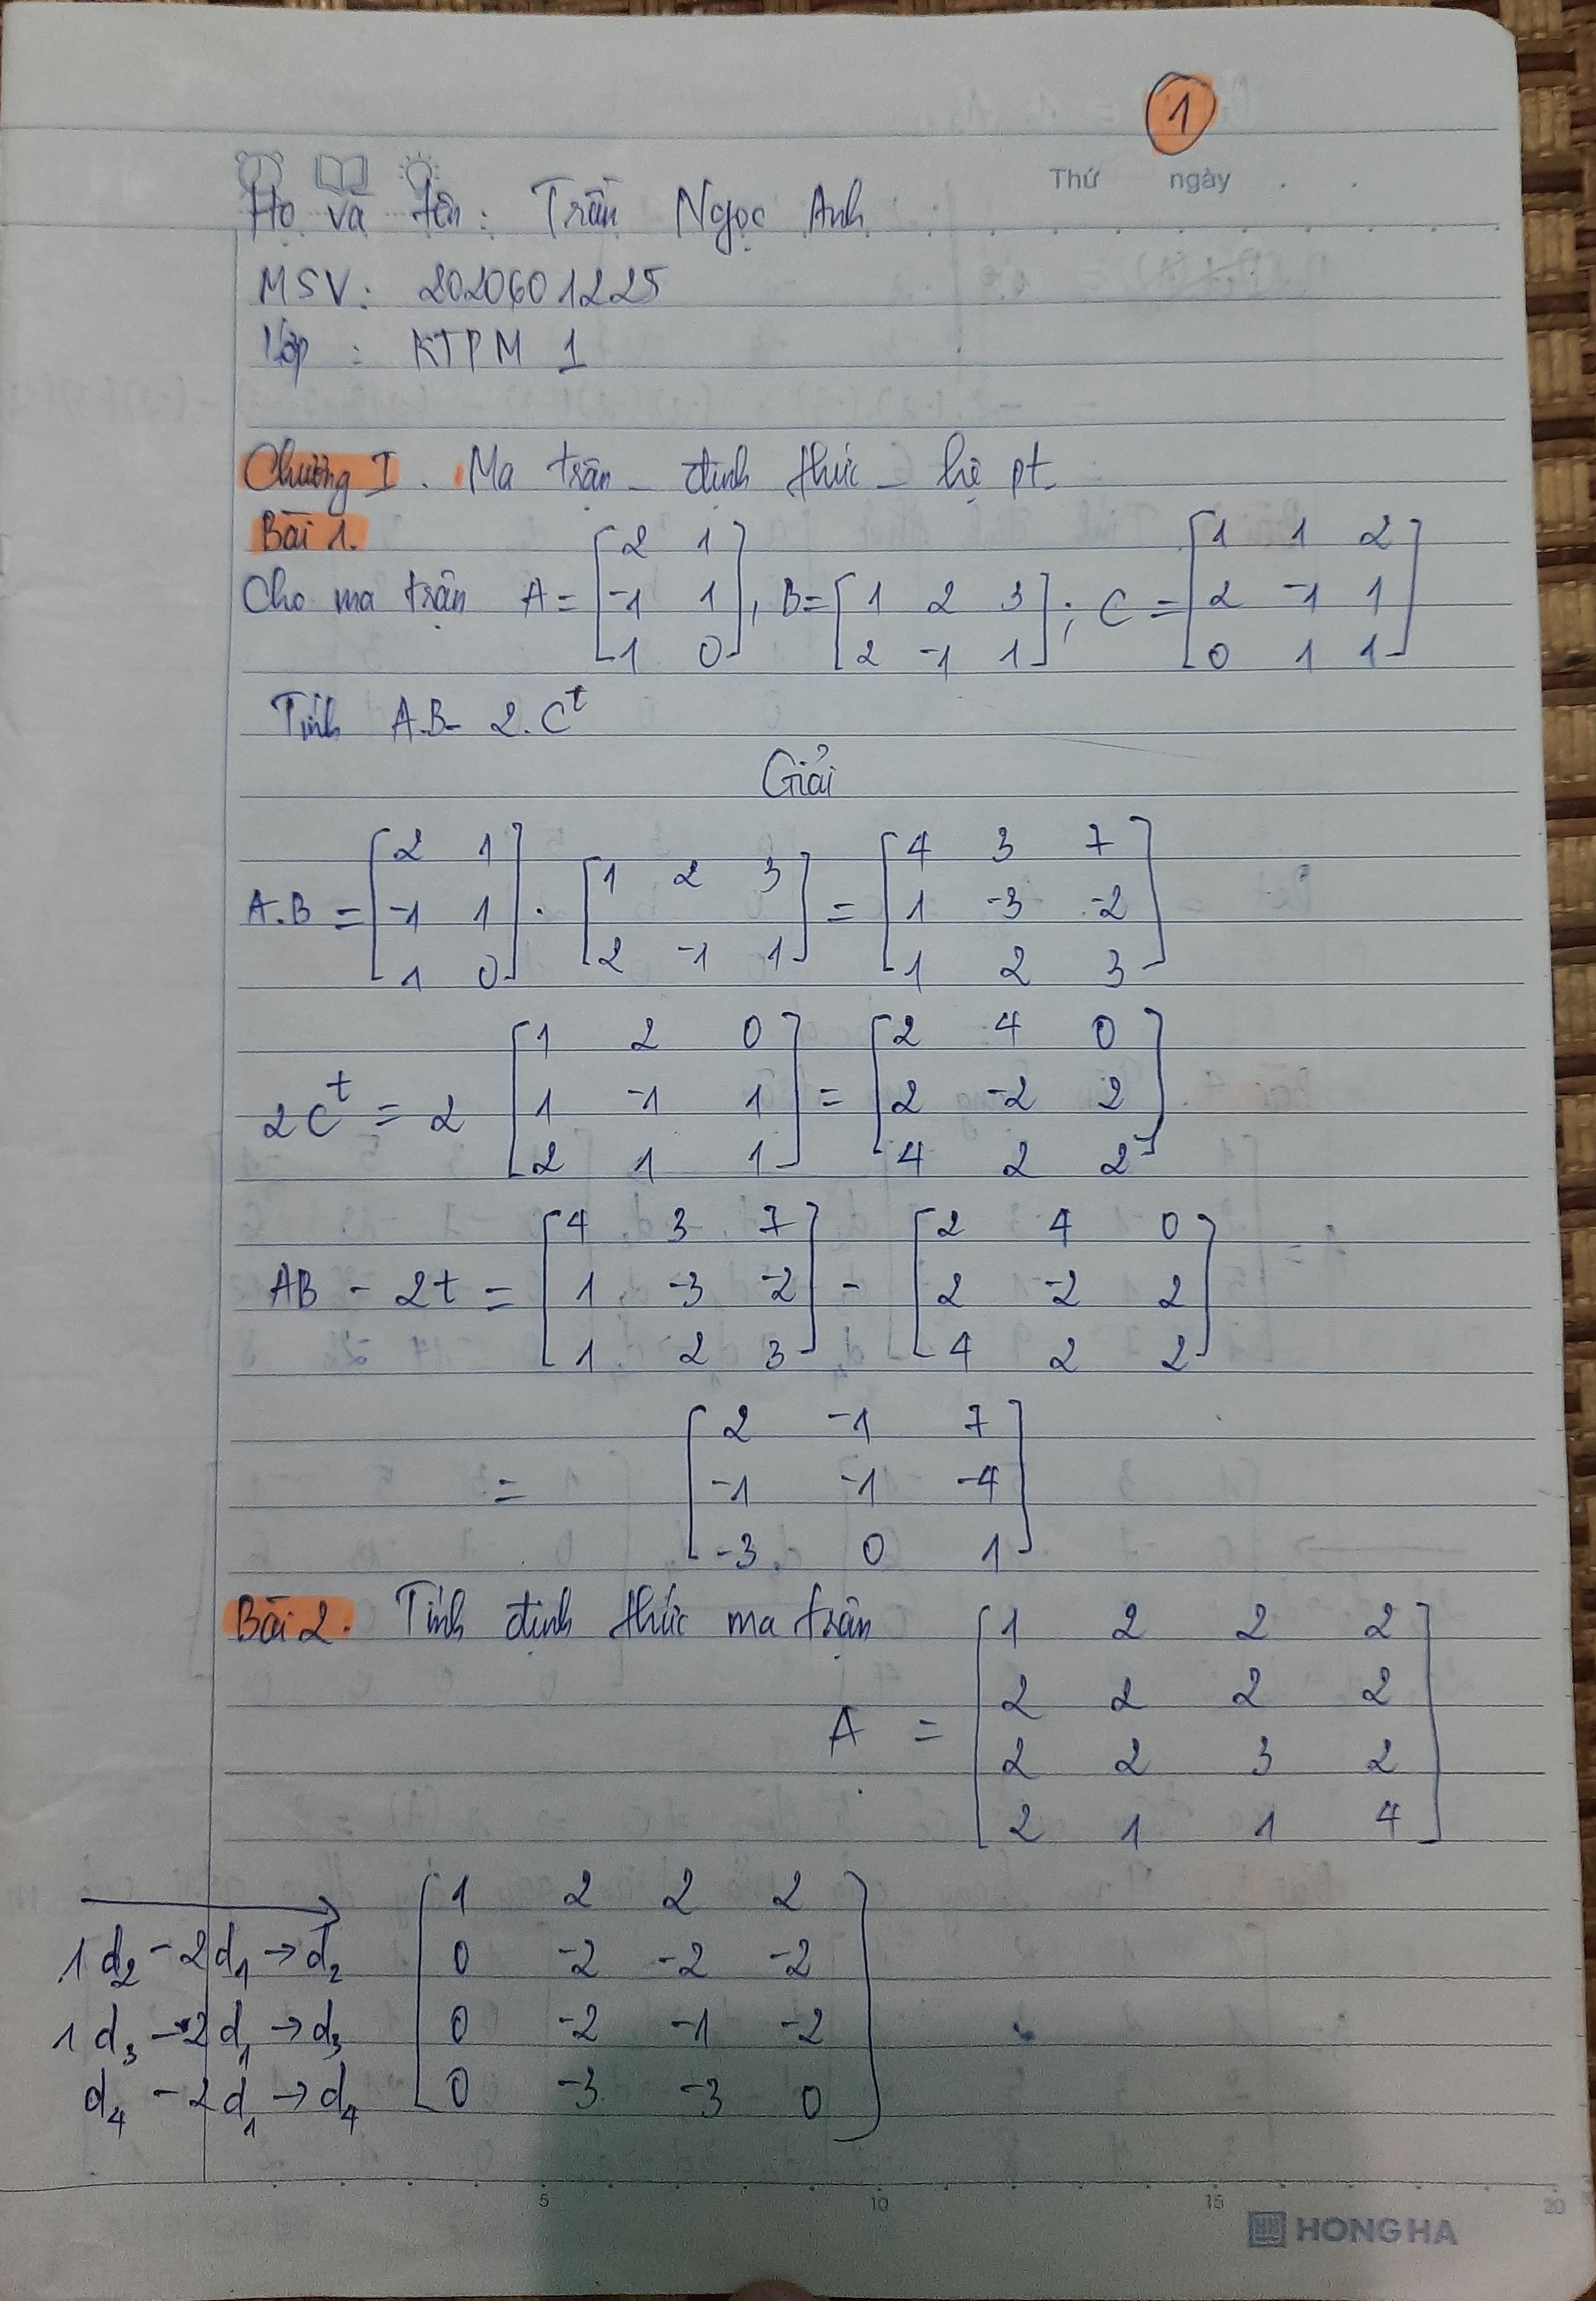 1
Thứ ngày
Họ và tên: Trần Ngọc Anh
MSV: 2020601225
Lớp : KTPM 1
Chương I. Ma trận - định thức - hệ pt
Bài 1.
Cho ma trận A = [2 1; -1 1; 1 0], B = [1 2 3; 2 -1 1]; C = [1 1 2; 2 -1 1; 0 1 1]
Tính A.B - 2.C^t
Giải
A.B = [2 1; -1 1; 1 0] . [1 2 3; 2 -1 1] = [4 3 7; 1 -3 -2; 1 2 3]
2C^t = 2 [1 2 0; 1 -1 1; 2 1 1] = [2 4 0; 2 -2 2; 4 2 2]
AB - 2t = [4 3 7; 1 -3 -2; 1 2 3] - [2 4 0; 2 -2 2; 4 2 2]
= [2 -1 7; -1 -1 -4; -3 0 1]
Bài 2. Tính định thức ma trận
A = [1 2 2 2; 2 2 2 2; 2 2 3 2; 2 1 1 4]
→ [1 2 2 2; 0 -2 -2 -2; 0 -2 -1 -2; 0 -3 -3 0]
1d₂ - 2d₁ → d₂
1d₃ - 2d₁ → d₃
d₄ - 2d₁ → d₄
5 10 15 20
HONG HA